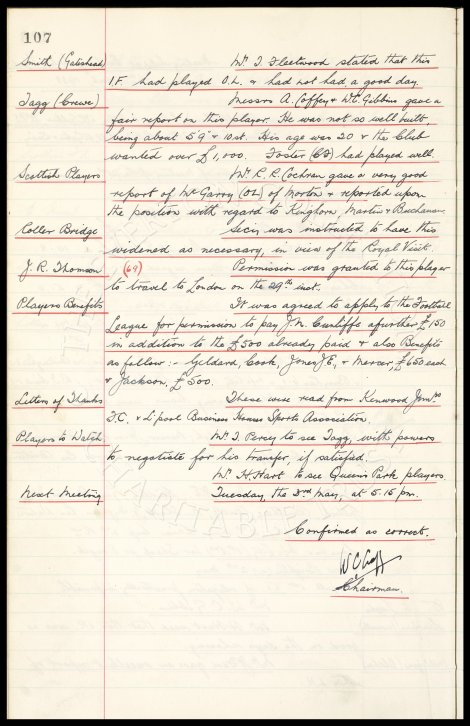 107
Smith (Gateshead) Mr. T. Fleetwood stated that this
I.F. had played O.L. & had not had a good day.
Tagg (Crewe) Messrs A. Coffey & W.C. Gibbins gave a
fair report on this player. He was not so well built,
being about 5' 9" & 10 st. His age was 20 & the Club
wanted over £1,000. Foster had played well.
Scottish Players Mr. R.R. Cochran gave a very good
report of McGarry (OL) of Morton & reported upon
the position with regard to Kinghorn, Martin & Buchanan.
Coller Bridge Secy was instructed to have this
widened as necessary, in view of the Royal Visit.
J. R. Thomson (69) Permission was granted to this player
to travel to London on the 29th inst.
Players Benefits It was agreed to apply to the Football
League for permission to pay J.N. Cunliffe a further £150
in addition to the £500 already paid & also Benefits
as follow :- Geldard, Cook, Jones J.E., & Mercer, £650 each
& Jackson, £500.
Letters of Thanks These were read from Kenwood Jnrs.
F.C. & L'pool Business Houses Sports Association.
Players to Watch Mr. T. Percy to see Tagg, with powers
to negotiate for his transfer, if satisfied.
Mr. H. Hart to see Queen's Park players.
Next Meeting Tuesday, the 3rd May, at 5.15 pm.
Confirmed as correct.
W C Cuff
Chairman.